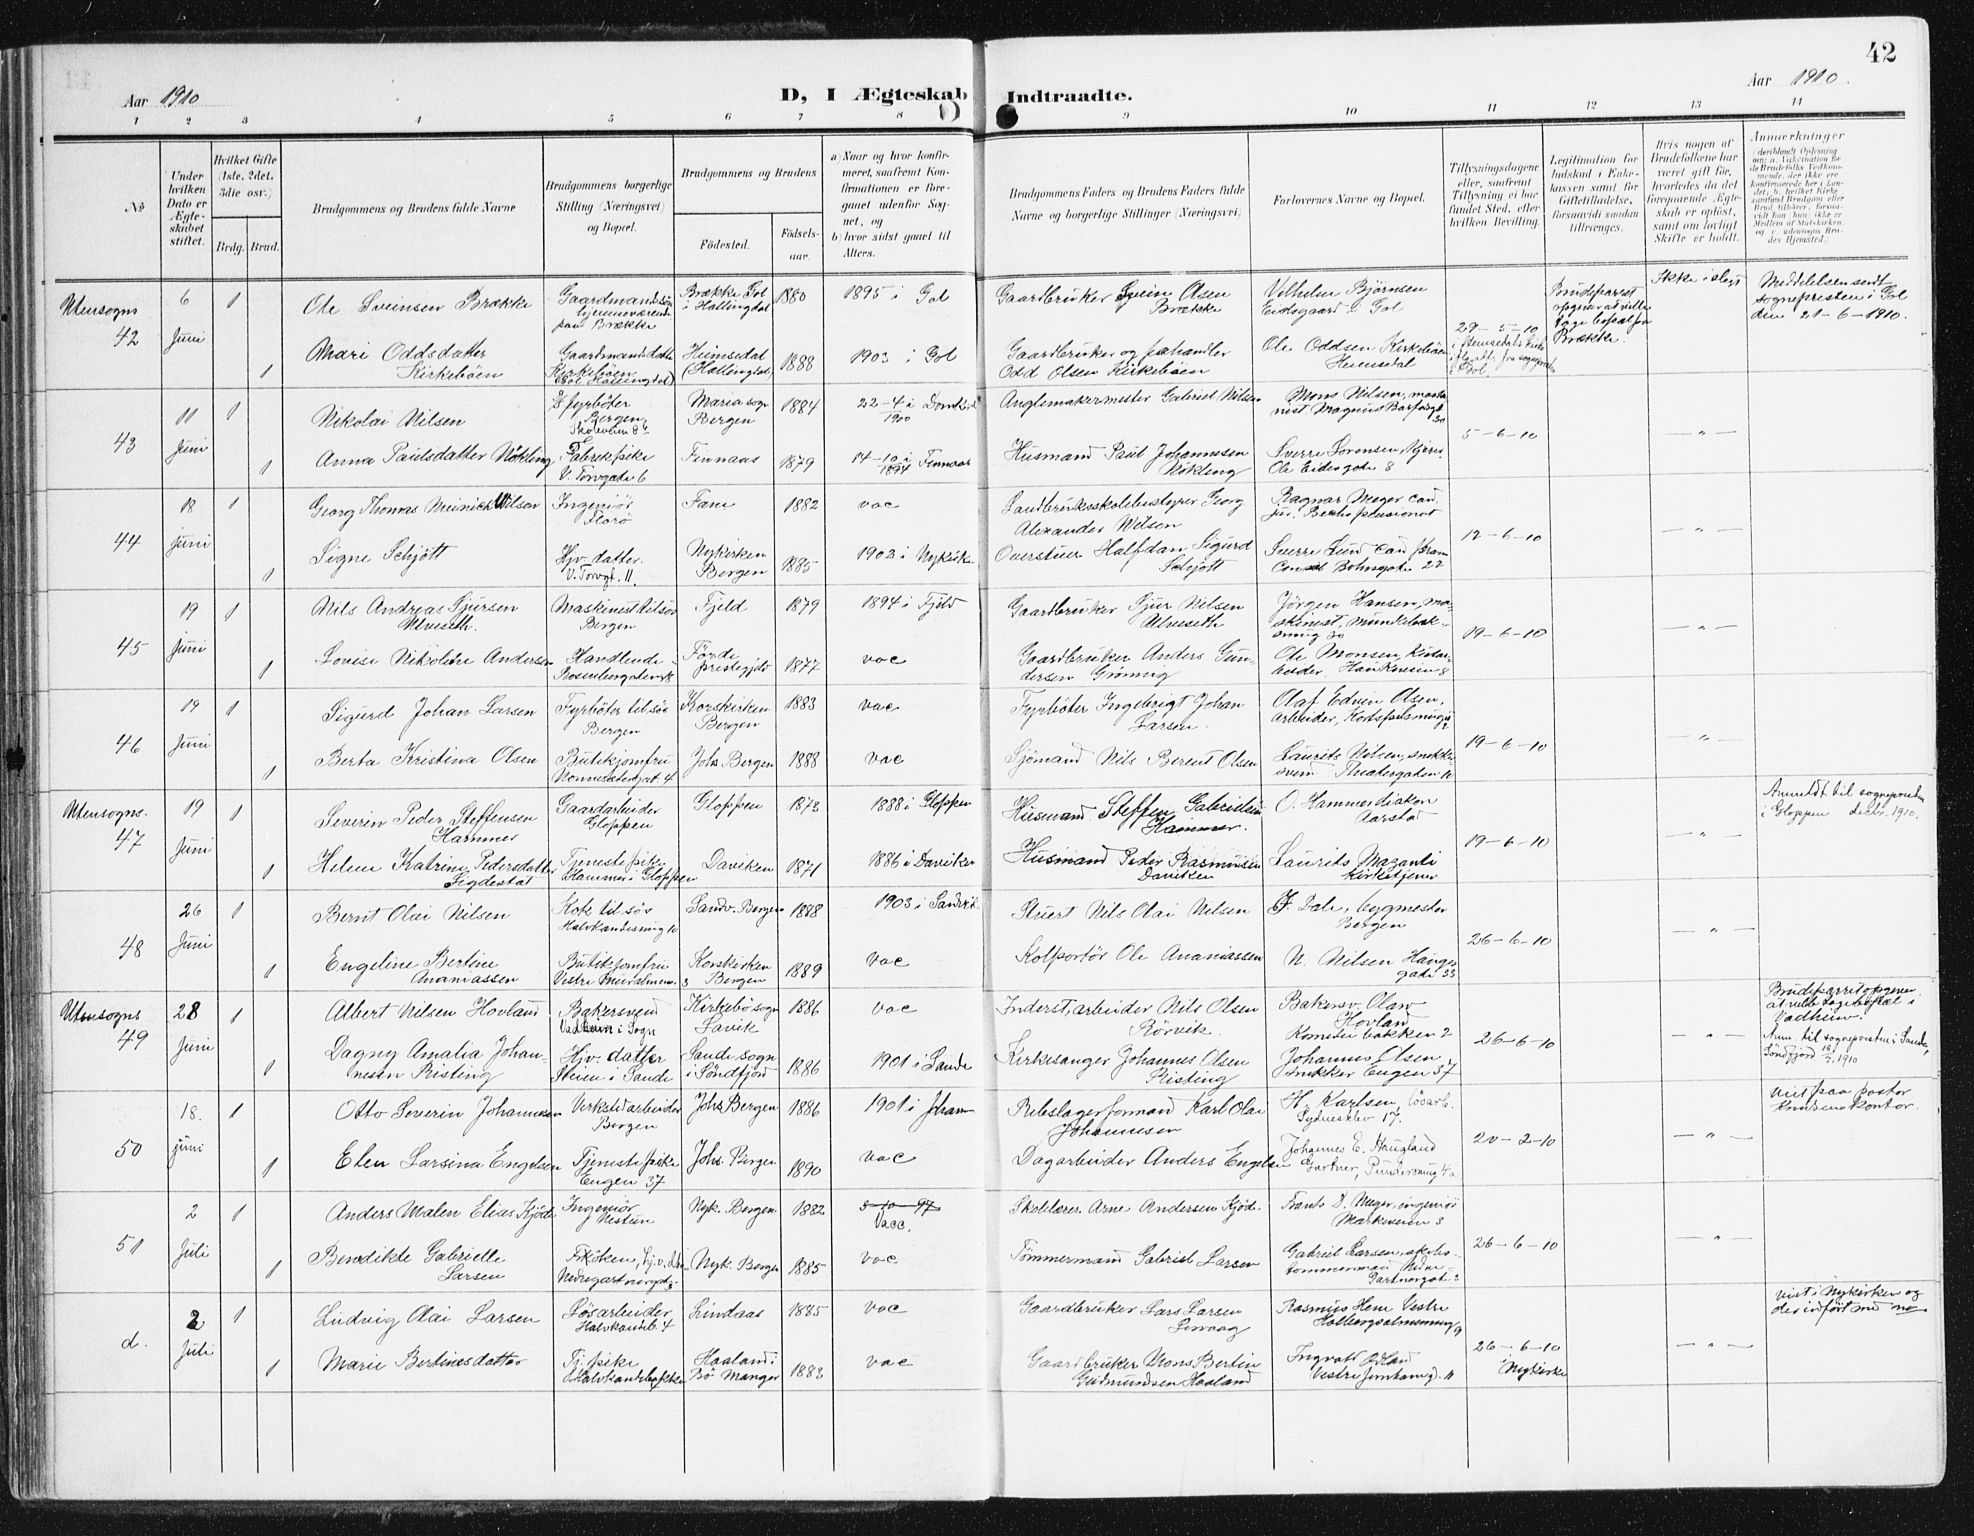 42
Aar 1910
D, I Ægteskab Indtraadte.
Aar 1910.
1 2 3 4 5 6 7 8 9 10 11 12 13 14
№
Under hvilken Dato er Ægteskabet stiftet.
Hvilket Gifte (1ste, 2det, 3die osv.)
Brdg. Brud.
Brudgommens og Brudens fulde Navne
Brudgommens borgerlige Stilling (Næringsvei) og Bopæl.
Brudgommens og Brudens
Födested.
Födselsaar.
a) Naar og hvor konfirmeret, saafremt Konfirmationen er foregaaet udenfor Sognet, og
b) hvor sidst gaaet til Alters.
Brudgommens Faders og Brudens Faders fulde Navne og borgerlige Stillinger (Næringsvei)
Forlovernes Navne og Bopæl.
Tillysningsdagene eller, saafremt Tillysning ei har fundet Sted, efter hvilken Bevilling.
Legitimation for Indskud i Enkekassen samt for Giftetilladelse, forsaavidt saadan tiltrænges.
Hvis nogen af Brudefolkene har været gift før, hvorledes da det foregaaende Ægteskab er oplöst, samt om lovligt Skifte er holdt.
Anmærkninger
Utensogns 42
6 Juni
1
Ole Sveinsen Brække
Gaardmandssøn
Brække
Brække Gol i Hallingdal
1880
1895 i Gol
Gaardbruker Svein Olsen Brække
Vilhelm Björnsen
Gol
29-5-10
Ikke i slegt
Meddelelse sendt
sognepresten i Gol
den 21-6-1910.
1
Mari Oddsdatter Kirkebøen
Gaardmandsdatter
Kirkebøen
Hemsedal (Hallingdal)
1888
1903 i Gol
Gaardbruker og
Odd Olsen Kirkebøen
Ole Oddsen Kirkebøen Hemsedal
43
11 Juni
1
Nikolai Nilsen
Fyrbøter Bergen
Maria sogn Bergen
1884
22-4 i Domk 1900
Anglemakermester Gabriel Nilsen
Mons Nilsen,
5-6-10
— " —
1
Anna Paulsdatter Nökling
Fabrikpike V. Torvgate 6
Finnaas
1879
14-10 i Finnaas 1894
Husmand Paul Johannesen Nökling
Sverre Sørensen,
Ole Eidesgate 8
44
18 Juni
1
Georg Thomas Meinich Wilson
Ingeniör Florö
Fane
1882
vac
Landbruksskolebestyrer Georg Alexander Wilson
Ragnar Meyer cand. jur.
12-6-10
— " —
1
Signe Schjött
Hjv. datter. V. Torvgt. 11.
Nykirken Bergen
1885
1903 i Nykirk
Overstuer Halfdan Sigurd Schjött
Sverre Lund cand
22
45
19 Juni
1
Nils Andreas Gjursen Ulveseth.
Maskinist tilsøs Bergen
Fjeld
1879
1894 i Fjeld
Gaardbruker Gjur Nilsen Ulveseth
Jörgen Hansen, maskinist,
19-6-10
— " —
1
Lovise Nikoline Andersen
Handlende
Førde prestegjeld
1877
vac
Gaardbruker Anders Gundersen Gröning
Ole Monsen,
46
19 Juni
1
Sigurd Johan Larsen
Fyrbøter til sös Bergen
Korskirken Bergen
1883
vac
Fyrbøter Ingebrigt Johan Larsen.
Olaf Edvin Olsen, arbeider,
19-6-10
— " —
1
Berta Kristina Olsen
Butikjomfru Nonnesætergat. 4
Johs Bergen
1888
vac
Sjömand Nils Berent Olsen
Laurits Nilsen, snekkersvend Theatergaden 11
Utensogns. 47
19 Juni
1
Severin Peder Steffensen Hammer
Gaardarbeider Gloppen
Gloppen
1873
1888 i Gloppen
Husmand Steffen Gabrielsen Hammer.
O. Hammer diakon Aarstad
19-6-10
— " —
Anmeldt til sognepresten
i Gloppen 1910.
1
Helene Katrine Pedersdatter Sigdestat
Tjenestepike Hammer i Gloppen
Daviken
1871
1886 i Daviken
Husmand Peder Rasmussen Daviken
Laurits Mazanti kirketjener
48
26 Juni
1
Bernt Olai Nilsen
Kok til søs
Sandv. Bergen
1888
1903 i Sandvik
Stuert Nils Olai Nilsen
J. Dale, bygmester Bergen
26-6-10
— " —
1
Engeline Bertine Ananiassen
Butikjomfru
Korskirken Bergen
1889
vac
Kolportör Ole Ananiassen
N. Nilsen Haugesgate 33
Utensogns 49
28 Juni
1
Albert Nilsen Hovland
Bakersvend Vadheim i Sogn
Kirkebø sogn Lavik
1886
vac
Inderst, arbeider Nils Olsen Rörvik.
Bakersv. Olav Hovland
26-6-10
— " —
Vadheim.
Anm. til sognepresten i Sande,
Söndfjord 1910
1
Dagny Amalia Johannesen Risting
Hjv. datter Steien i Sande
Sande sogn i Søndfjord
1886
1901 i Sande
Kirkesanger Johannes Olsen Risting
Johannes Olsen snekker Engen 37
50
18. juni
1
Otto Severin Johannesen
Verkstedarbeider Bergen
Johs Bergen
1886
1901 i Johann
Rebslagerformand Karl Olai Johannesen
H. Karlsen, løsarb. Sydneskleb 17.
20-2-10
— " —
viet paa pastor
Knudsens kontor.
1
Elen Larsina Engelsen
Tjenestepike Engen 37
Johs. Bergen
1890
vac
Dagarbeider Anders Engelsen
Johannes E. Haugland Gartner,
51
2 Juli
1
Anders Malen Elias Kjøde
Ingeniør Nestun
Nyk. Bergen
1882
3-10-97
Vacc.
Skolelærer Arne Andersen Kjöde
Frants D. Meyer, ingeniør Markeveien 3
26-6-10
— " —
1
Bendikte Gabrielle Larsen
Nedregartnergt
Nyk. Bergen
1885
vac
Tømmermand Gabriel Larsen
Gabriel Larsen, skibstømmermand Nedre Gartnergat.
d.
2 Juli
1
Ludvig Olai Larsen
Løsarbeider
Lindaas
1885
vac
Gaardbruker Lars Larsen
Rasmus Hem Vestre Holbergsalmenning 9
26-6-10 i Nykirke
— " —
viet i Nykirken og
der indført med no
1
Marie Bertinesdatter
Tj. pike
Haaland i Bö Manger
1883
vac
Gaardbruker Mons Bertin Gudmundsen Haaland
Ingvald Ødland